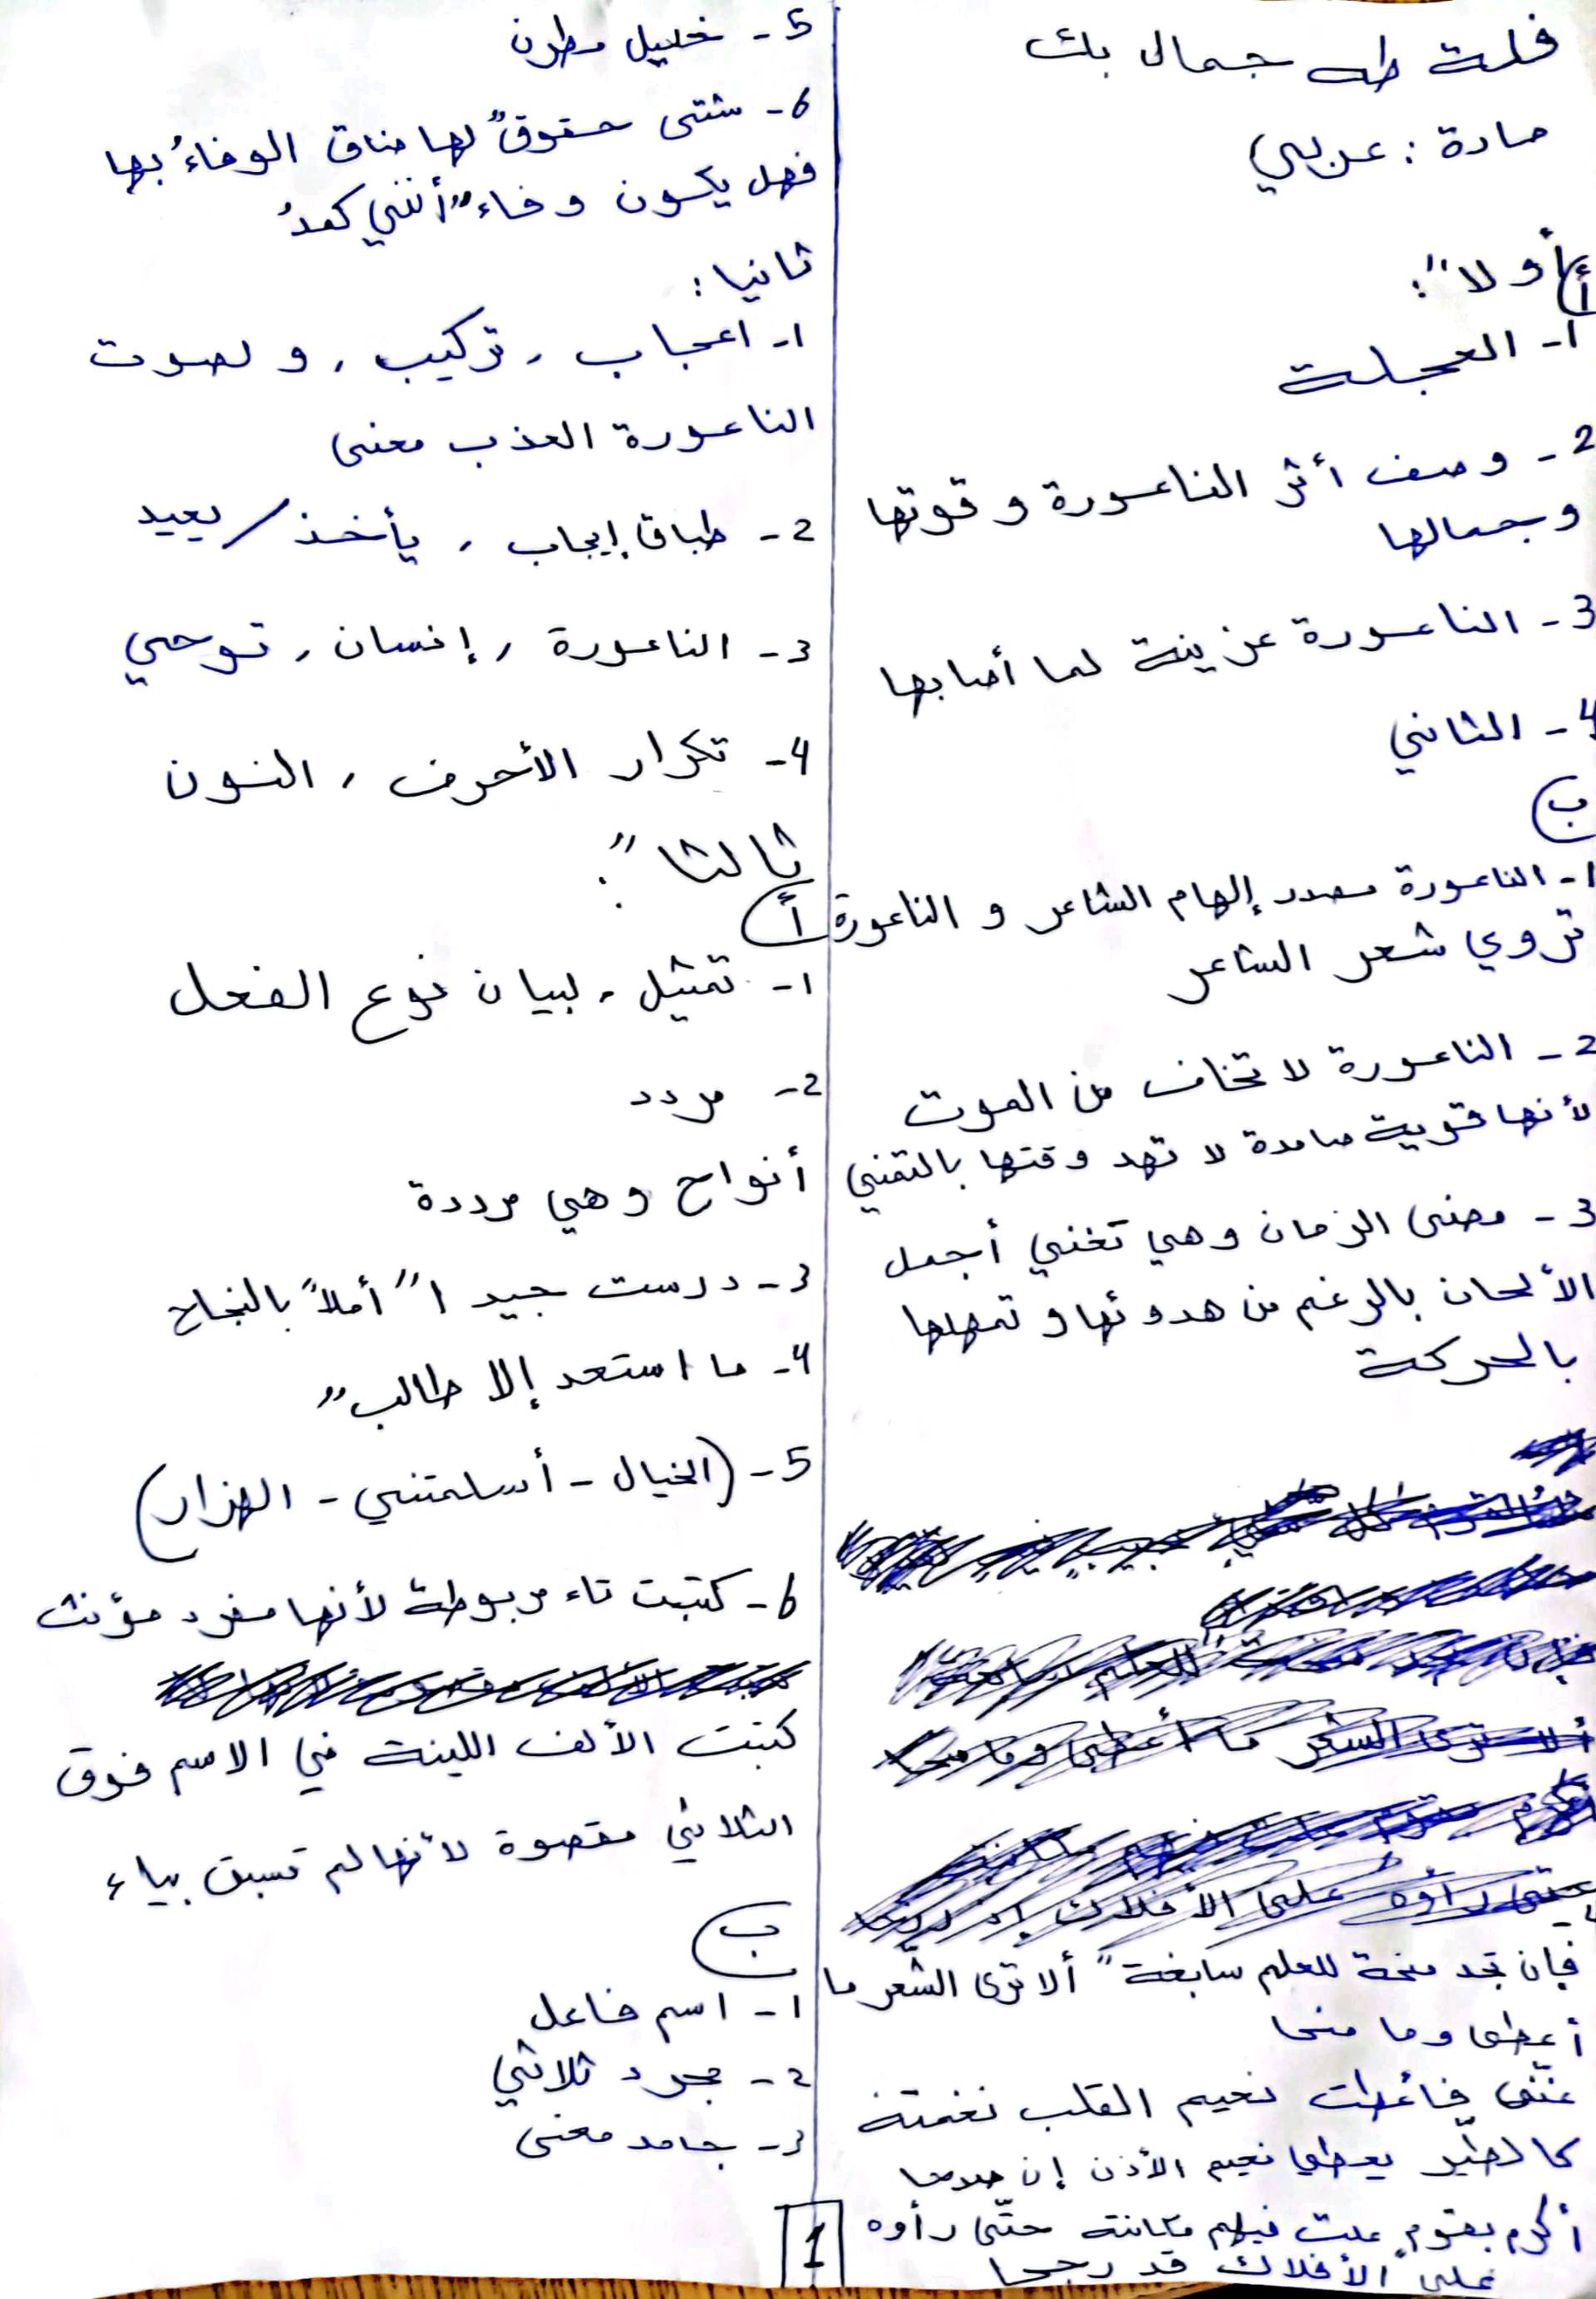 فلة طه جمال بك
مادة : عربي
أولا":
أ
1- العجلة
2- وصف أثر الناعورة و قوتها
وجمالها
3- الناعورة عزينة لما أصابها
4- الثاني
ب
1- الناعورة مصدر إلهام الشاعر و الناعورة
تروي شعر الشاعر
2- الناعورة لا تخاف من الموت
لأنها قوية صامدة لا تهد وقتها بالتمني
3- مضى الزمان وهي تغني أجمل
الألحان بالرغم من هدوئها و تمهلها
بالحركة
4-
فإن تجد منحة للعلم سابغة" ألا ترى الشّعر ما
أعطى وما منحا
غنّى فأعطت نعيم القلب نغمته
كالطّير يعطي نعيم الأذن إن صدحا
أكرم بقوم علت فيهم مكانته حتّى رأوه
على الأفلاك قد رجحا
5- خليل مطرن
6- شتى حقوقٌ لها ضاق الوفاءُ بها
فهل يكون وفاء" أنني كمدُ
ثانيا :
1- اعجاب ، تركيب ، و لصوت
الناعورة العذب معنى
2- طباق إيجاب ، يأخذ / يعيد
3- الناعورة ، إنسان ، توحي
4- تكرار الأحرف ، النون
ثالثا":
أ
1- تمثيل ، لبيان نوع الفعل
2- مردد
أنواح وهي مرددة
3- درست جيدا" أملاً بالنجاح
4- ما استعد إلا طالب"
5- (الخيال - أسلمتني - الهزار)
6- كتبت تاء مربوطة لأنها مفرد مؤنث
كتبت الألف اللينة في الاسم فوق
الثلاثي مقصوة لأنها لم تسبق بياء
ب
1- اسم فاعل
2- مجرد ثلاثي
3- جامد معنى
1